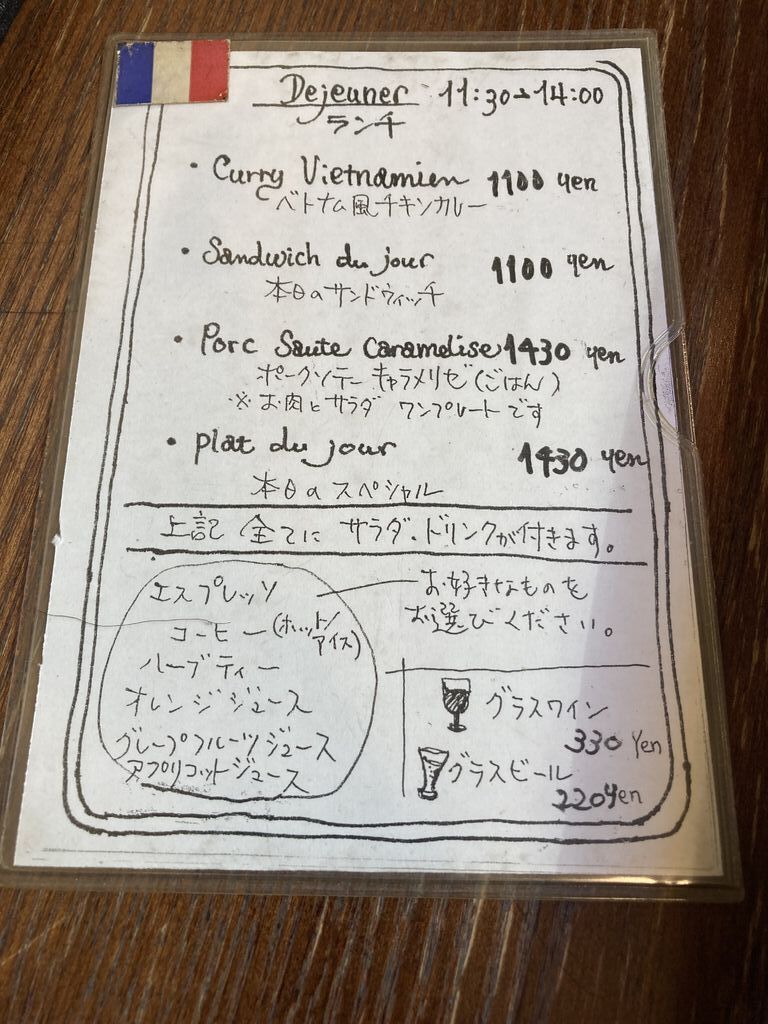 Dejeuner 11:30～14:00
ランチ
・Curry Vietnamien 1100 yen
ベトナム風チキンカレー
・Sandwich du jour 1100 yen
本日のサンドウィッチ
・Porc Saute Caramelise 1430 yen
ポークソテー キャラメリゼ(ごはん)
※お肉とサラダ ワンプレートです
・plat du jour 1430 yen
本日のスペシャル
上記 全てに サラダ、ドリンクが付きます。
エスプレッソ
コーヒー(ホット/アイス)
ハーブティー
オレンジジュース
グレープフルーツジュース
アプリコットジュース
お好きなものを
お選びください。
グラスワイン
330 Yen
グラスビール
220 yen